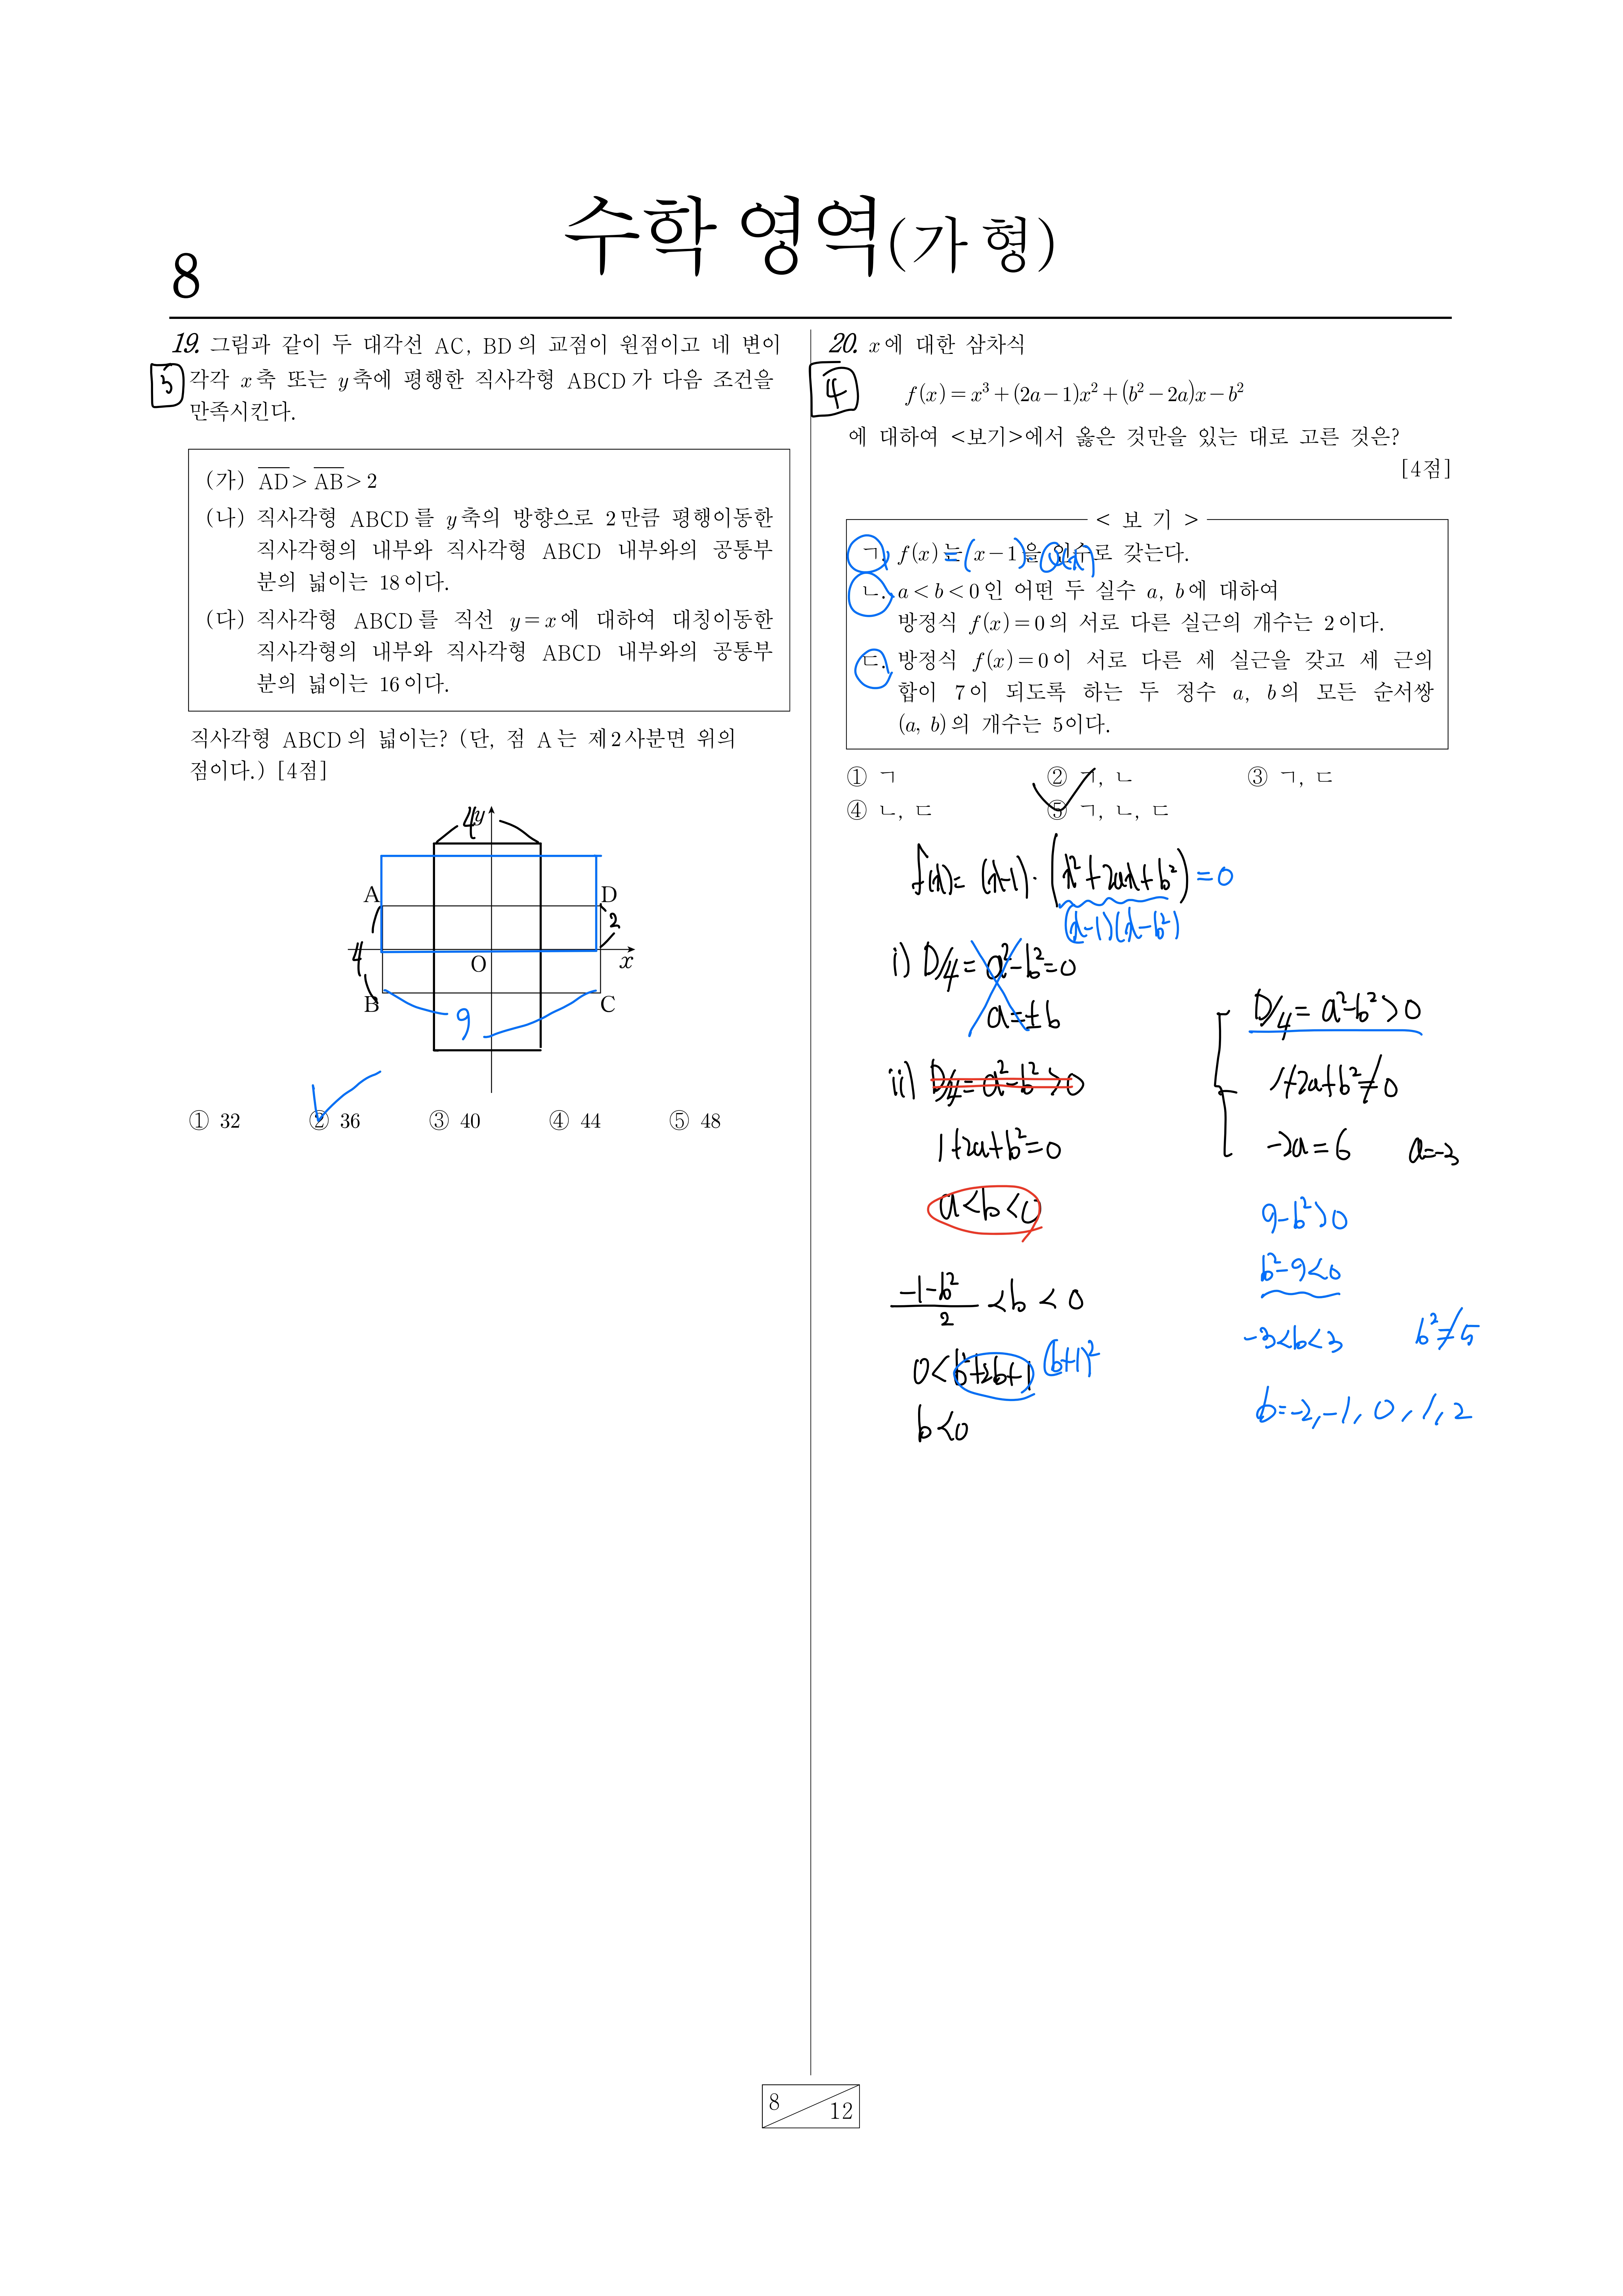 수학 영역(가 형)
8
19. 그림과 같이 두 대각선 AC, BD의 교점이 원점이고 네 변이
3
각각 x축 또는 y축에 평행한 직사각형 ABCD가 다음 조건을
만족시킨다.
(가) AD > AB > 2
(나) 직사각형 ABCD를 y축의 방향으로 2만큼 평행이동한
직사각형의 내부와 직사각형 ABCD 내부와의 공통부
분의 넓이는 18이다.
(다) 직사각형 ABCD를 직선 y=x에 대하여 대칭이동한
직사각형의 내부와 직사각형 ABCD 내부와의 공통부
분의 넓이는 16이다.
직사각형 ABCD의 넓이는? (단, 점 A는 제2사분면 위의
점이다.) [4점]
4 y
A D
2
4 O x
B C
9
① 32 ② 36 ③ 40 ④ 44 ⑤ 48
20. x에 대한 삼차식
4
f(x)=x³+(2a−1)x²+(b²−2a)x−b²
에 대하여 <보기>에서 옳은 것만을 있는 대로 고른 것은?
[4점]
< 보 기 >
ㄱ. f(x)는 (x−1)을 인수로 갖는다.
=( )·Q(x)
ㄴ. a<b<0인 어떤 두 실수 a, b에 대하여
방정식 f(x)=0의 서로 다른 실근의 개수는 2이다.
ㄷ. 방정식 f(x)=0이 서로 다른 세 실근을 갖고 세 근의
합이 7이 되도록 하는 두 정수 a, b의 모든 순서쌍
(a, b)의 개수는 5이다.
① ㄱ ② ㄱ, ㄴ ③ ㄱ, ㄷ
④ ㄴ, ㄷ ⑤ ㄱ, ㄴ, ㄷ
f(x)= (x-1)·(x²+2ax+b²)=0
(x-1)(x-b²)
i) D/4= a²-b²=0
a=±b
ii) D/4= a²-b²>0
1+2a+b²=0
a<b<0
(-1-b²)/2 <b < 0
0<b²+2b+1 (b+1)²
b<0
D/4= a²-b²>0
1+2a+b²≠0
-2a=6 a=-3
9-b²>0
b²-9<0
-3<b<3 b²≠5
b=-2,-1, 0, 1, 2
8
12